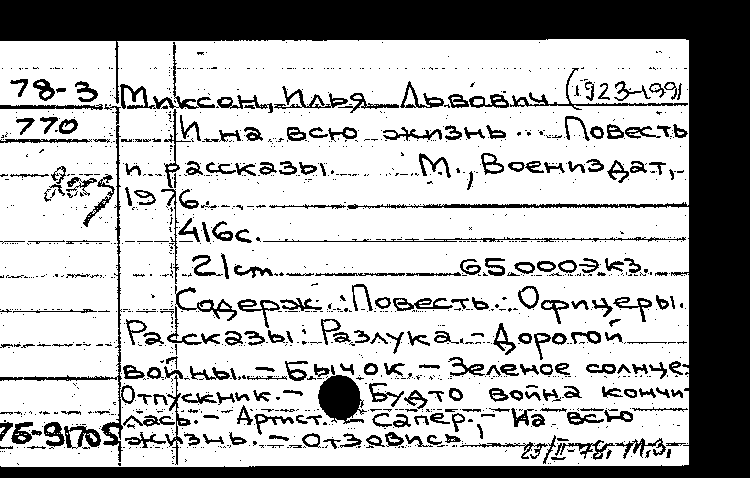 78-3 Миксон, Илья Львович (1923-1991
770 И на всю жизнь... Повесть
и рассказы. М., Воениздат,-
1976.
416с.
21cm 65000экз.
Содерж.: Повесть: Офицеры.
Рассказы: Разлука.- Дорогой
войны. - Бычок. - Зеленое солнце.
Отпускник. - Будто война кончи-
лась. - Артист. - Сапер. - На всю
76-31705 жизнь. - Отзовись
23/II-78, М.З.